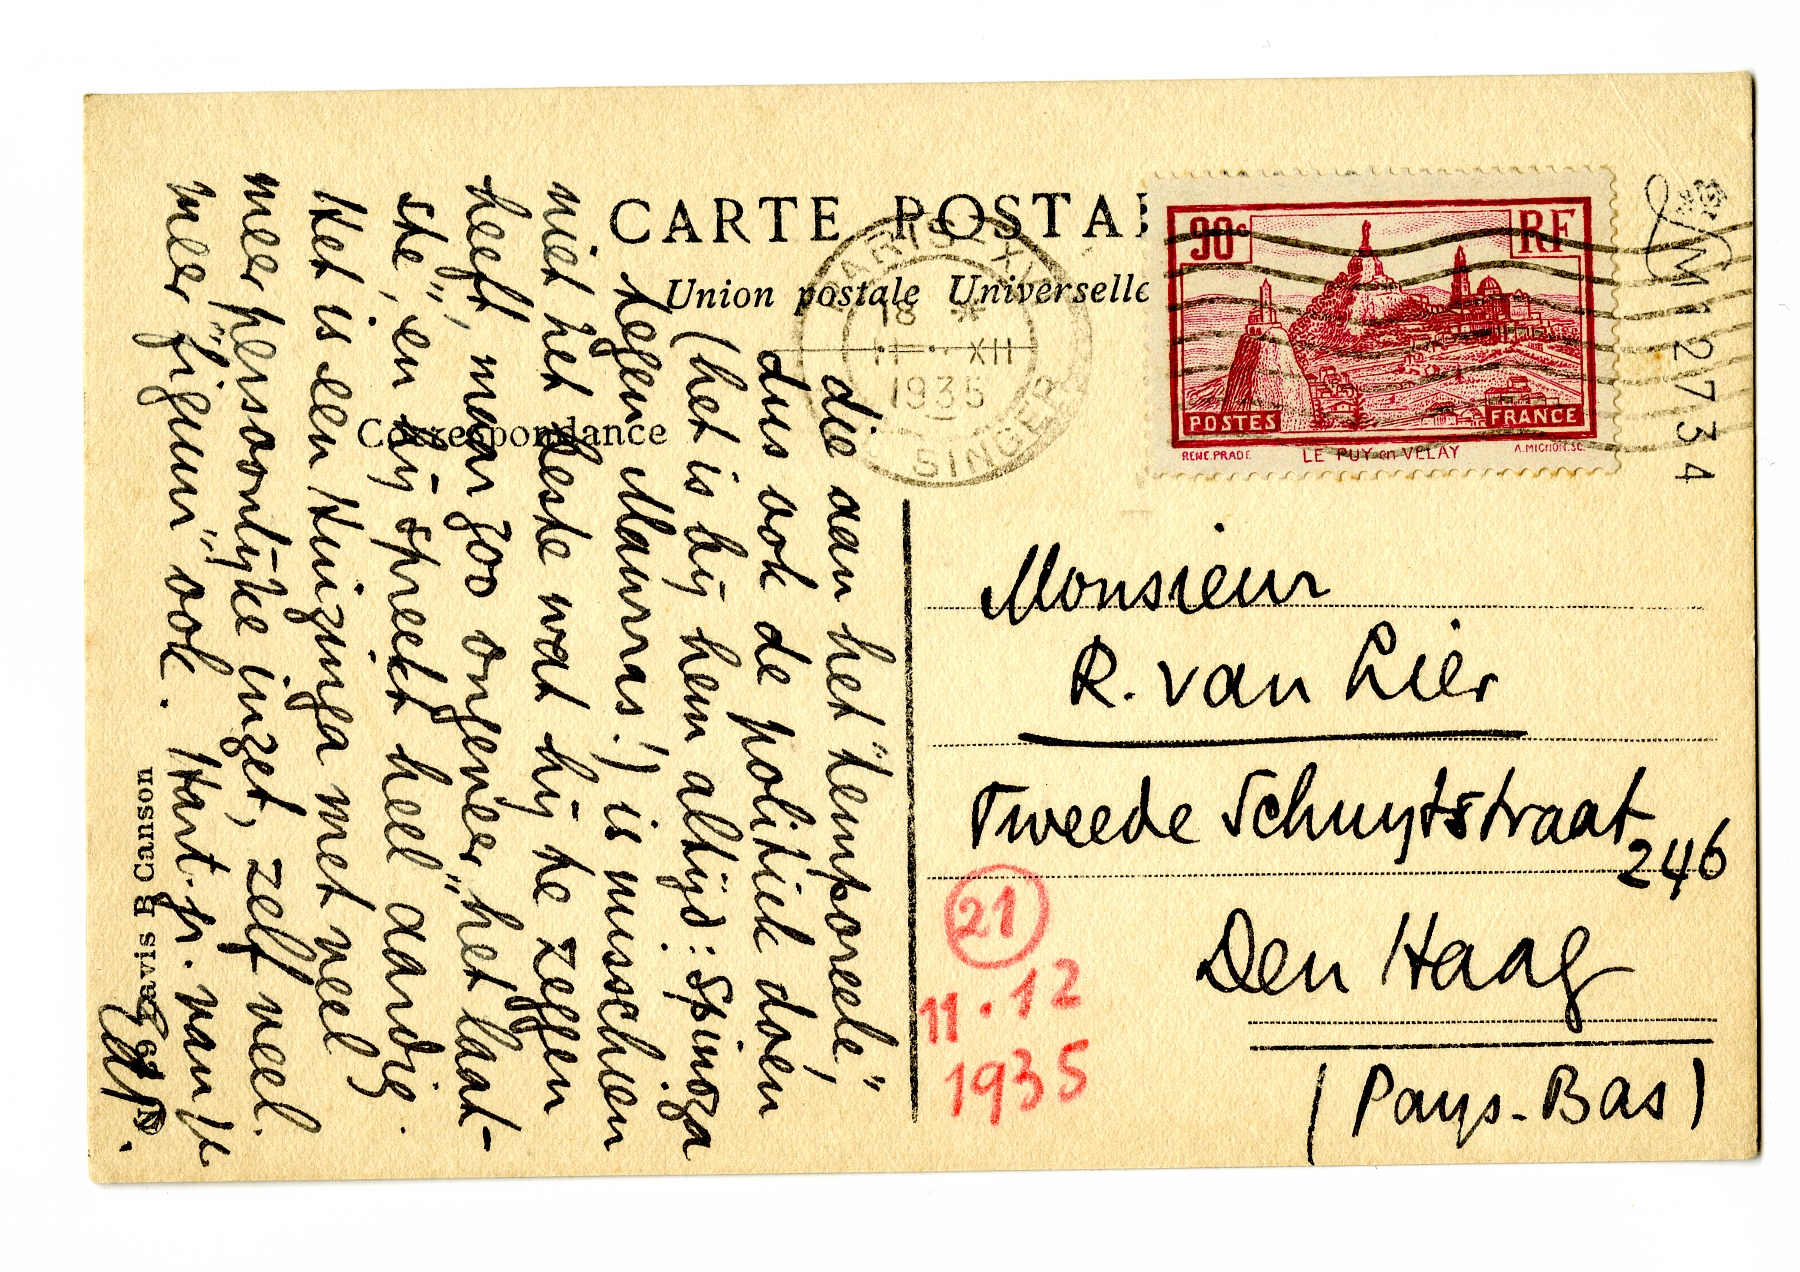 CARTE POSTAL
Union postale Universelle
Correspondance
PARIS XVI
18 *
11 XII
1935
SINGER
90c
RF
POSTES
FRANCE
RENE.PRADE
LE PUY en VELAY
A.MIGNON.SC.
M 12734
die aan het "temporeele",
dus ook de politiek doen
(het is bij hem altijd: Spinoza
tegen Maurras!) is misschien
niet het beste wat hij te zeggen
heeft, maar zoo ongeveer "het laat-
ste", en hij spreekt heel aardig.
Het is een Huizinga met veel
meer persoonlijke inzet, zelf veel
meer "figuur" ook. Hart. gr. van je
EdP.
Monsieur
R. van Lier
Tweede Schuytstraat
246
Den Haag
(Pays-Bas)
21
11.12
1935
Canson